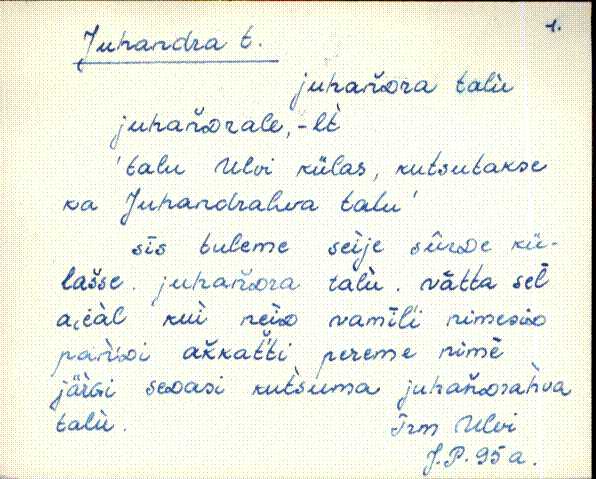 1.
Juhandra t.
juhan̆ᴅra talù
juhan̆ᴅrale, -lt̀
'talu Ulvi külas, kutsutakse
ka Juhandrahva talu'
sīs tuleme seìje sūrᴅe kü-
lašse. juhan̆ᴅra talù. vătta sel̄
kuì neìᴅ vamīl̆i nimesiᴅ
ak̆kat̆ti pereme nimē
jär̀ɢi seᴅasi kut̀suma juhan̆ᴅrah̀va
talù. Trm Ulvi
J.P. 95 a.